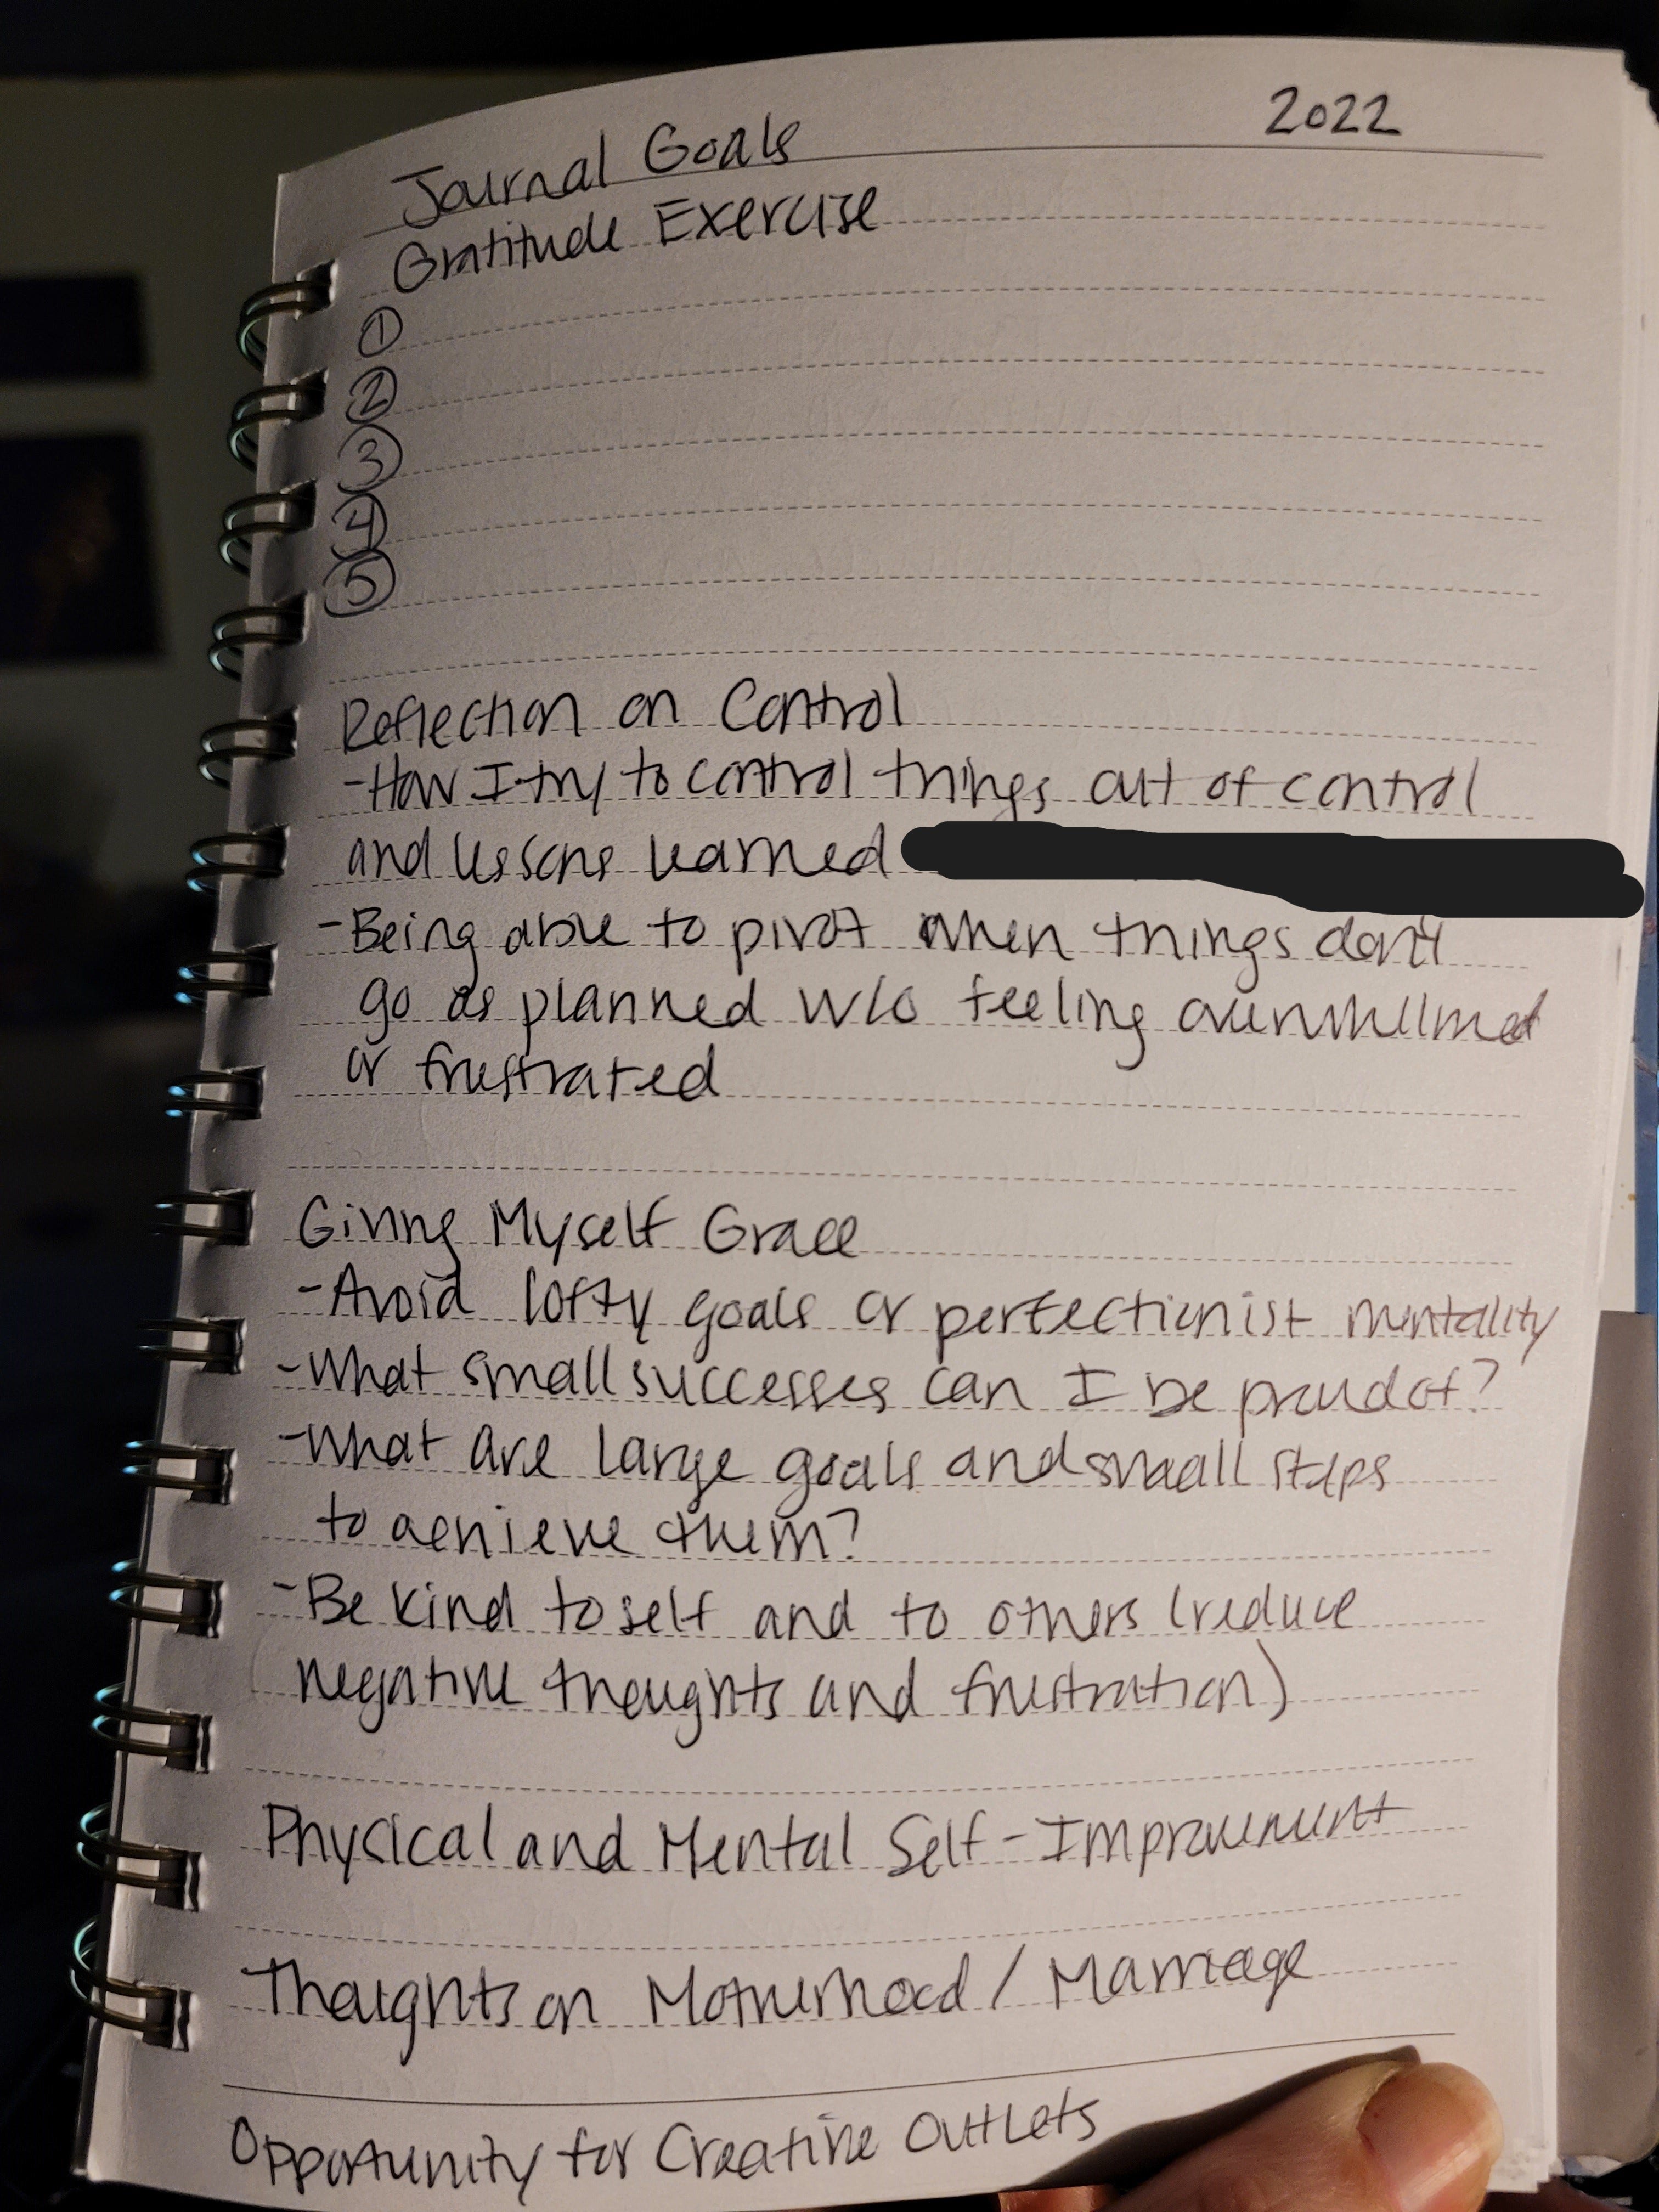 2022
Journal Goals
Gratitude Exercise
①
②
③
④
⑤
Reflection on Control
-How I try to control things out of control
and lessons learned
-Being able to pivot when things don't
go as planned w/o feeling overwhelmed
or frustrated
Giving Myself Grace
-Avoid lofty goals or perfectionist mentality
-What small successes can I be proud of?
-What are large goals and small steps
to achieve them?
-Be kind to self and to others (reduce
negative thoughts and frustration)
Physical and Mental Self-Improvement
Thoughts on Motherhood / Marriage
Opportunity for Creative Outlets